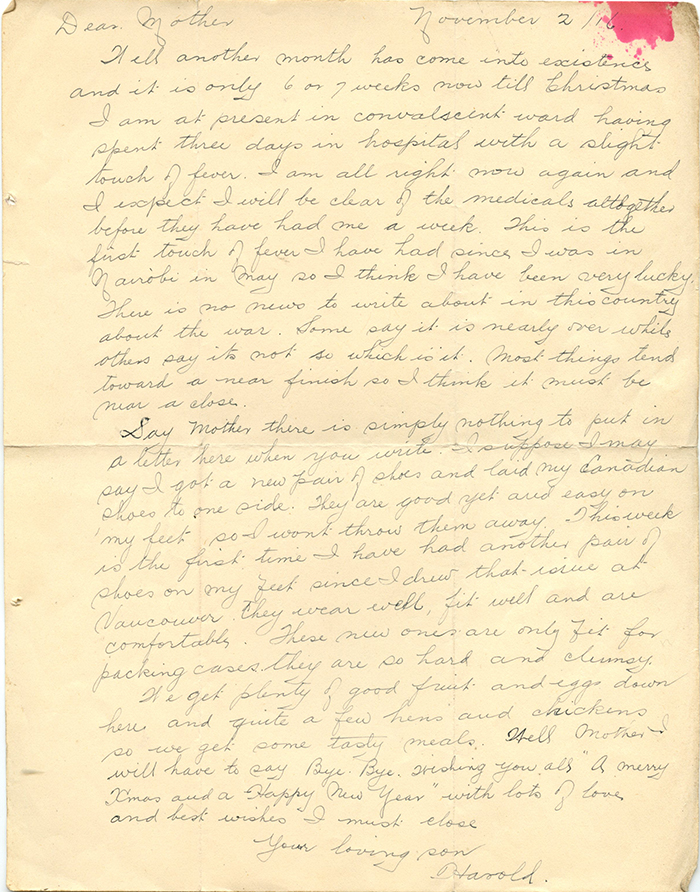 Dear Mother November 2/16
Well another month has come into existence
and it is only 6 or 7 weeks now till Christmas
I am at present in convalscent ward having
spent three days in hospital with a slight
touch of fever. I am all right now again and
I expect I will be clear of the medicals altogether
before they have had me a week. This is the
first touch of fever I have had since I was in
Nairobi in May so I think I have been very lucky.
There is no news to write about in this country
about the war. Some say it is nearly over while
others say its not so which is it. Most things tend
toward a near finish so I think it must be
near a close.
Say Mother there is simply nothing to put in
a letter here when you write. I suppose I may
say I got a new pair of shoes and laid my Canadian
shoes to one side. They are good yet and easy on
my feet so I wont throw them away. This week
is the first time I have had another pair of
shoes on my feet since I drew that issue at
Vancouver. They wear well, fit well and are
comfortable. These new ones are only fit for
packing cases they are so hard and clumsy.
We get plenty of good fruit and eggs down
here and quite a few hens and chickens
so we get some tasty meals. Well Mother I
will have to say Bye. Bye. wishing you all "A merry
Xmas and a Happy New Year" with lots of love
and best wishes I must close
Your loving son
Harold.